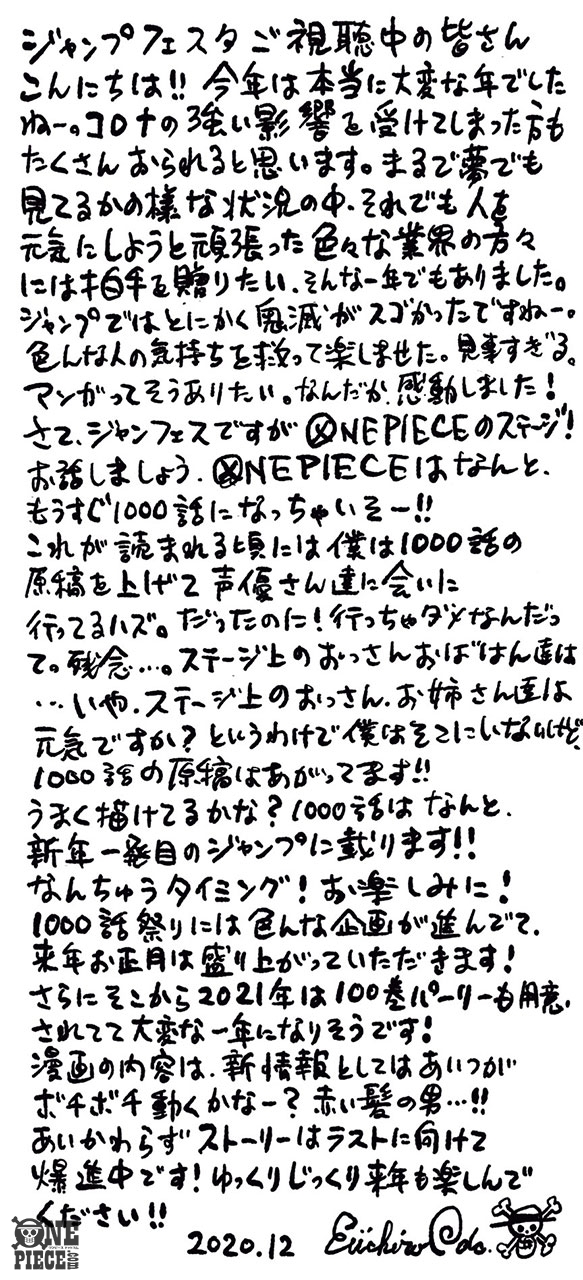 ジャンプフェスタご視聴中の皆さん
こんにちは!! 今年は本当に大変な年でした
ねー。コロナの強い影響を受けてしまった方も
たくさんおられると思います。まるで夢でも
見てるかの様な状況の中、それでも人を
元気にしようと頑張った色々な業界の方々
には拍手を贈りたい、そんな一年でもありました。
ジャンプではとにかく鬼滅がスゴかったですねー。
色んな人の気持ちを救って楽しませた。見事すぎる。
マンガってそうありたい。なんだか感動しました!
さて、ジャンフェスですが ONE PIECEのステージ!
お話しましょう、ONE PIECEはなんと、
もうすぐ1000話になっちゃいそー!!
これが読まれる頃には僕は1000話の
原稿を上げて声優さん達に会いに
行ってるハズ。だったのに!行っちゃダメなんだっ
て。残念…。ステージ上のおっさんおばはん達は
…いや、ステージ上のおっさん、お姉さん達は
元気ですか?というわけで僕はそこにいないけど、
1000話の原稿はあがってます!!
うまく描けてるかな?1000話はなんと、
新年一発目のジャンプに載ります!!
なんちゅうタイミング!お楽しみに!
1000話祭りには色んな企画が進んでて、
来年お正月は盛り上がっていただきます!
さらにそこから2021年は100巻パーリーも用意、
されてて大変な一年になりそうです!
漫画の内容は、新情報としてはあいつが
ボチボチ動くかなー?赤い髪の男…!!
あいかわらずストーリーはラストに向けて
爆進中です!ゆっくりじっくり来年も楽しんで
ください!!
2020.12 Eiichiro Oda.
ONE PIECE.com